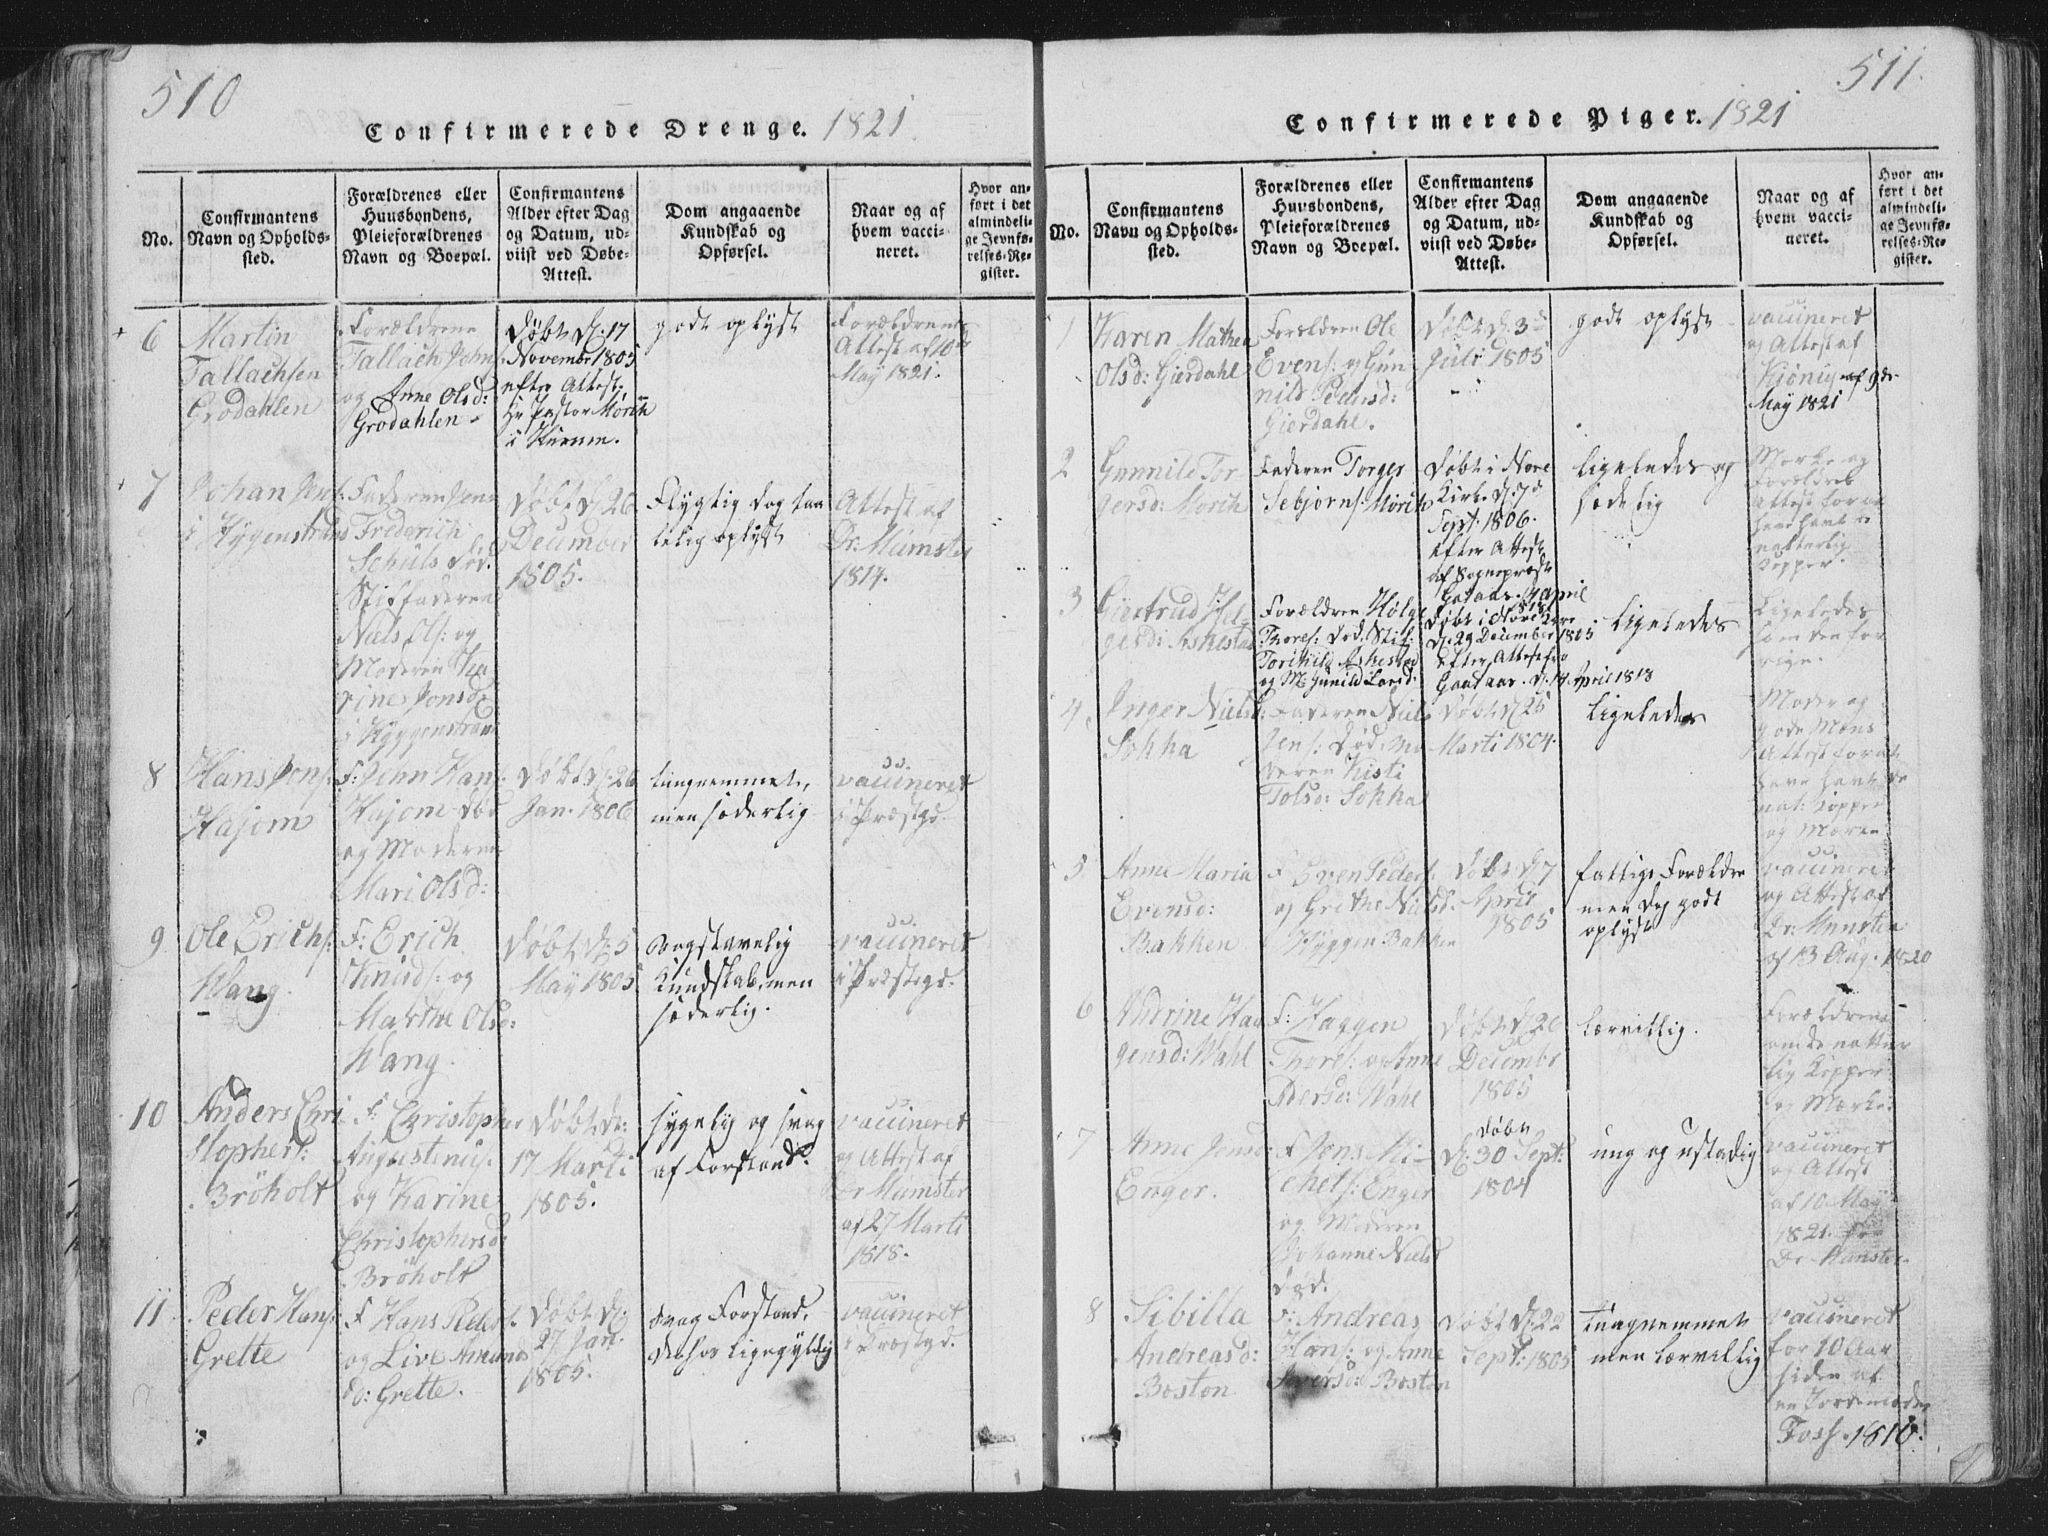 510
Confirmerede Drenge. 1821.
No.
Confirmantens
Navn og Opholds-
sted.
Forældrenes eller
Huusbondens,
Pleieforældrenes
Navn og Boepæl.
Confirmantens
Alder efter Dag
og Datum, ud-
viist ved Døbe-
Attest.
Dom angaaende
Kundskab og
Opførsel.
Naar og af
hvem vacci-
neret.
Hvor an-
ført i det
almindeli-
ge Jevnfø-
relses-Re-
gister.
6
Martin
Tallachsen
Grodahlen
Forældrene
Tallach Johns:
og Anne Olsd:
Grodahlen
Døbt d. 17
November 1805
efter Attest:
Hr Pastor Mørch
i Hurum.
godt oplyst
Forældrenes
Attest af 10de
May 1821.
7
Johan Jens:
i Hyggenstrand
Faderen Jens
Frederich
Schuls død.
Stiffaderen
Niels Ols: og
Moderen Ka
rine Jonsd
i Hyggenstrand
Døbt d. 26
December
1805.
Flygtig dog taa
lelig oplyst
Attest af
Dr: Münster
1814.
8
Hans Jons:
Hajom
F: John Hans:
Hajom død
og Moderen
Mari Olsd:
Døbt d. 26
Jan. 1806
tungnemmet,
men sæderlig
vaccineret
i Præstgd.
9
Ole Erichs:
Wang.
F: Erich
Knuds: og
Marthe Olsd:
Wang.
Døbt d. 5
May 1805.
Bogstavelig
Kundskab, men
sæderlig.
vaccineret
i Præstegd.
10
Anders Chri
stophers:
Bröholt
F: Christopher
Augustinus:
og Karine
Christophersd:
Bröholt
Døbt d:
17 Marti
1805.
sygelig og svag
af Forstand.
vaccineret
og Attest af
Dr Münster
af 27 Marti
1818.
11
Peder Hans:
Grette
F Hans Peders:
og Live Amund
sd: Grette.
Døbt d:
27 Jan.
1805.
svag Forstand,
derhos ligegyldig
vaccineret
i Præstgd.
511.
Confirmerede Piger. 1821
No.
Confirmantens
Navn og Opholds-
sted.
Forældrenes eller
Huusbondens,
Pleieforældrenes
Navn og Boepæl.
Confirmantens
Alder efter Dag
og Datum, ud-
viist ved Døbe-
Attest.
Dom angaaende
Kundskab og
Opførsel.
Naar og af
hvem vacci-
neret.
Hvor an-
ført i det
almindeli-
ge Jevnfø-
relses-Re-
gister.
1
Karen Mathea
Olsd: Gierdahl
Forældren Ole
Evens: og Gun-
nild Pedersd:
Gierdahl.
Døbt d. 3de
Juli 1805
godt oplyst
vaccineret
og Attest af
Kiönig af 9de
May 1821
2
Gunnile Tor
gersd: Morich
Faderen Torger
Sebjørns: Morich
Døbt i Nore
Kirke d. 7de
Sept. 1806.
efter Attest
af Sognepræst
Gataas. 14 April
1818
ligeledes og
sædelig
Mærke og
Forældres
Attest for at
have havt de
natterlig
Kopper.
3
Giertrud Hel-
gesd: Askestad
Forældren Holge
Thores: død, Stif:
Torkild Askestad
og M: Gunild Larsd:
Døbt i Nore Kirke
d. 29 December 1805
efter Attest fra
Gaataas. d. 14 April 1818
ligeledes
Ligeledes
som den for
rige.
4
Inger Nielsd:
Sokka
Faderen Niels
Jens: død, Mo
deren Kisti
Tolsd: Sokka
Døbt d. 25
Marti 1804.
ligeledes
Moder og
gode Mæns
Attest for at
have havt de
nat: Kopper
og Mærke
5
Anne Maria
Evensd:
Bakken
F Even Peders:
og Grethe Nielsd:
Hyggen Bakken
Døbt d. 7
April
1805
fattige Forældre
men dog godt
oplyst
vaccineret
og Attest af
Dr. Münster
af 13 Aug. 1820
6
Andrine Haa
gensd: Wahl
F: Haagen
Thores: og Anne
Andersd: Wahl
Døbt d. 26
December
1805
lærvillig.
Forældrene
om de nattur
lig Kopper
og Mærke.
7
Anne Jonsd:
Enger.
F Jons Mi-
chels: Enger
og Moderen
Johanne Nielsd
død.
Døbt
d: 30 Sept:
1804
ung og ustadig
vaccineret
og Attest
af 10 May
1821 fra
Dr Münster
8
Sibilla
Andreasd:
Boston
F: Andreas
Hans: og Anne
Iversd: Boston
Døbt d. 22
Sept: 1805
Tungnemmet
men lærvillig
vaccineret
for 10 Aar
siden af
en Jordemoder
Foss. 1810.